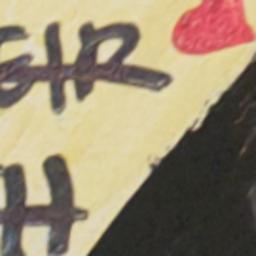 GIR
H